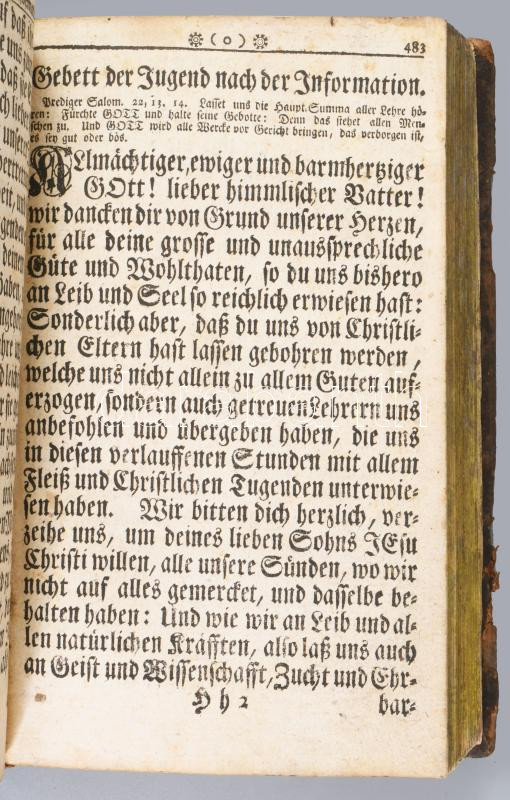 ( o ) 483
Gebett der Jugend nach der Information.
Prediger Salom. 22, 13. 14. Lasset uns die Haupt-Summa aller Lehre hö-
ren: Fürchte GOTT und halte seine Gebotte: Denn das stehet allen Men-
schen zu. Und GOTT wird alle Wercke vor Gericht bringen, das verborgen ist,
es sey gut oder bös.
ALlmächtiger, ewiger und barmhertziger
GOtt! lieber himmlischer Vatter!
wir dancken dir von Grund unserer Herzen,
für alle deine grosse und unaussprechliche
Güte und Wohlthaten, so du uns bishero
an Leib und Seel so reichlich erwiesen hast:
Sonderlich aber, daß du uns von Christli-
chen Eltern hast lassen gebohren werden,
welche uns nicht allein zu allem Guten auf-
erzogen, sondern auch getreuen Lehrern uns
anbefohlen und übergeben haben, die uns
in diesen verlauffenen Stunden mit allem
Fleiß und Christlichen Tugenden unterwie-
sen haben. Wir bitten dich herzlich, ver-
zeihe uns, um deines lieben Sohns JEsu
Christi willen, alle unsere Sünden, wo wir
nicht auf alles gemercket, und dasselbe be-
halten haben: Und wie wir an Leib und al-
len natürlichen Kräfften, also laß uns auch
an Geist und Wissenschafft, Zucht und Ehr-
H h 2 bar-